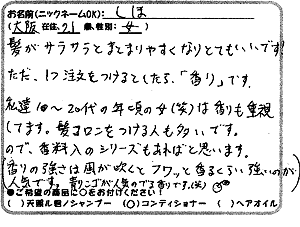 お名前(ニックネームOK): しほ
(大阪 在住、21歳、性別: 女)
髪がサラサラとまとまりやすくなりとてもいいです!
ただ、1つ注文をつけるとしたら、「香り」です。
私達10〜20代の年頃の女(笑)は香りも重視
してます。髪コロンをつける人も多いです。
ので、香料入のシリーズもあればと思います。
香りの強さは風が吹くとフワッと香るくらい強いのが
人気です。青リンゴが人気のでる香りです。(笑)
●ご希望の商品に○をお付けください!
( )天眼ル島ノシャンプー (○)コンディショナー ( )ヘアオイル